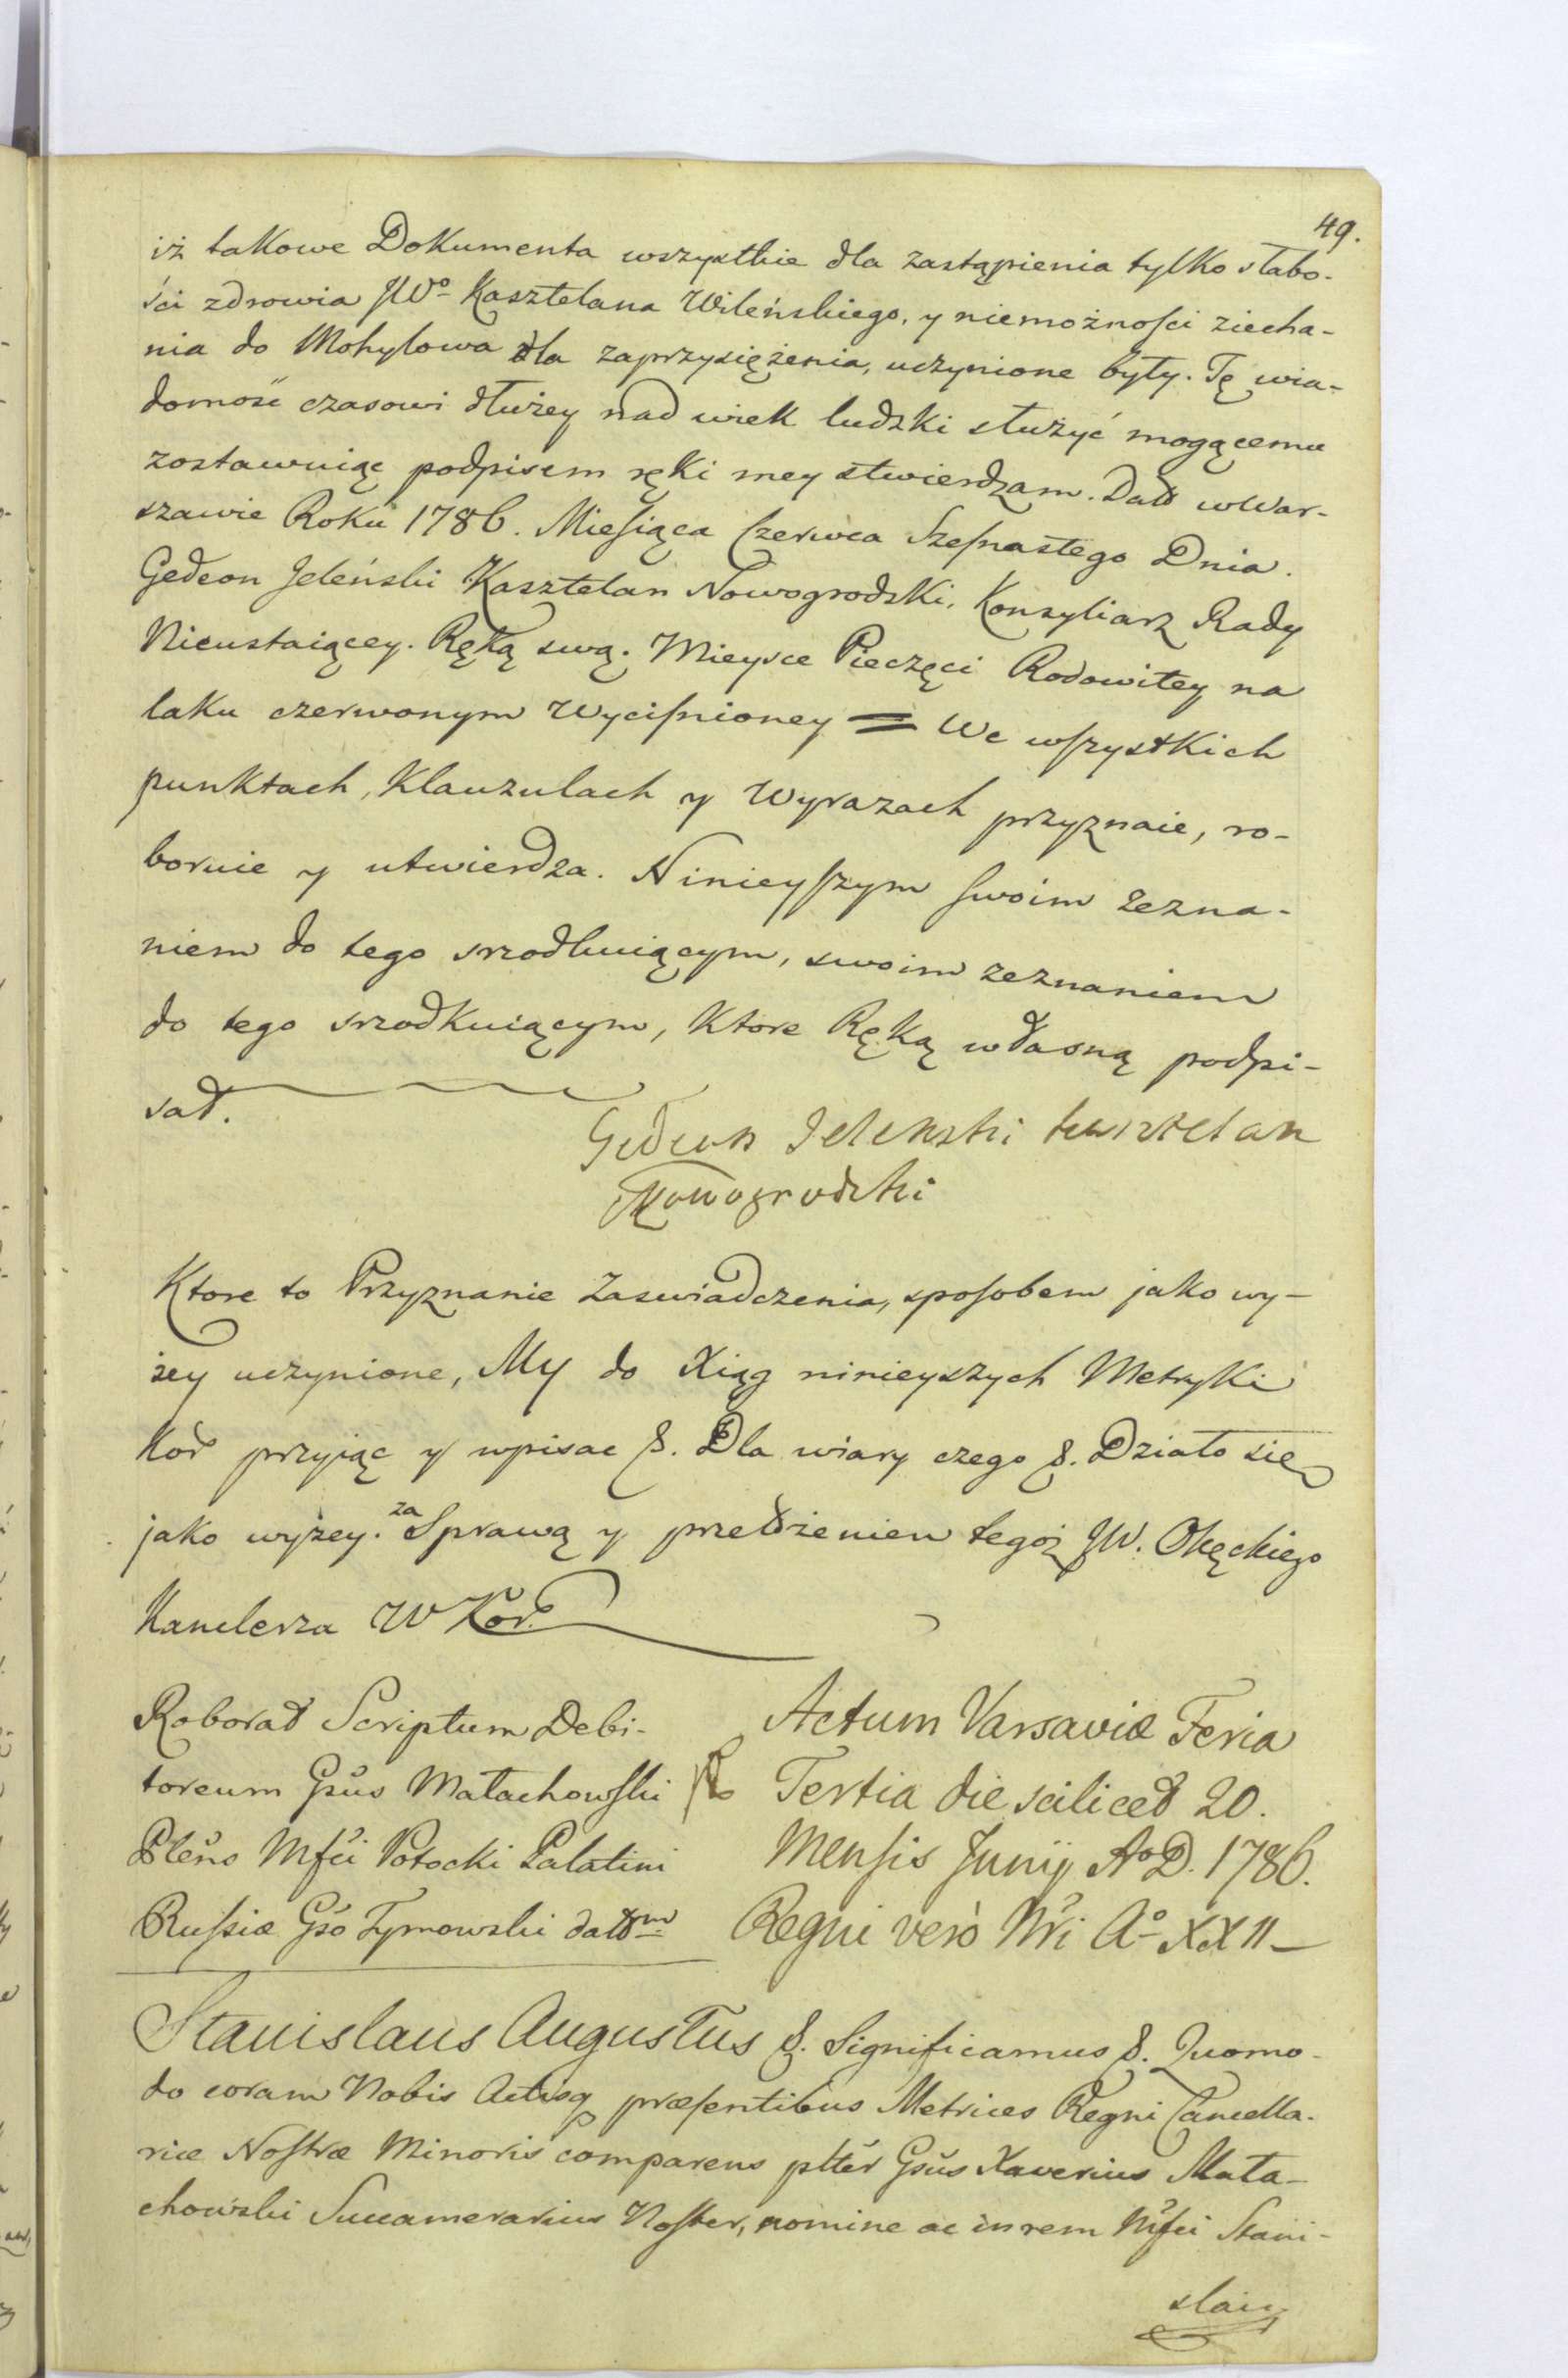 49.
iż takowe Dokumenta wszystkie dla zastąpienia tylko słabo-
ści zdrowia JWo Kasztelana Wileńskiego, y niemożności ziecha-
nia do Mohylowa dla zaprzysiężenia, uczynione były. Tę wia-
domość czasowi dłużey nad wiek ludzki służyć mogącemu
zostawuiąc podpisem ręki mey stwierdzam. Datt w War-
szawie Roku 1786. Miesiąca Czerwca Szesnastego Dnia.
Gedeon Jeleński Kasztelan Nowogrodzki, Konsyliarz Rady
Nieustaiącey. Ręką swą. Mieysce Pieczęci Rodowitey na
laku czerwonym wyciśnioney = We wszystkich
punktach, Klauzulach y Wyrazach przyznaie, ro-
boruie y utwierdza. Ninieyszym swoim zezna-
niem do tego srzodkuiącym, swoim zeznaniem
do tego srzodkuiącym, Ktore Ręką własną podpi-
sał.
Gedeon Jelenski kasztelan
Nowogrodzki
Ktore to Przyznanie Zaswiadczenia, sposobem jako wy-
żey uczynione, My do Xiąg ninieyszych Metryki
Kor przyiąc y wpisac &. Dla wiary czego &. Działo się
jako wyżey. za Sprawą y przełożeniem tegoż JW. Okęckiego
Kanclerza W Kor.
Roborat Scriptum Debi-
toreum Gsus Małachowski
Plens Mfci Potocki Palatini
Russiæ Gso Tymowski datum
Actum Varsaviæ Feria
Tertia die scilicet 20.
Mensis Junij Ao D. 1786.
Regni vero Nri Ao XXII
Stanislaus Augustus &. Significamus &. Quomo-
do coram Nobis Actisq præsentibus Metrices Regni Cancella-
riæ Nostræ Minoris comparens plter Gsus Xaverius Mała-
chowski Succamerarius Noster, nomine ac in rem Mfci Stani-
slai